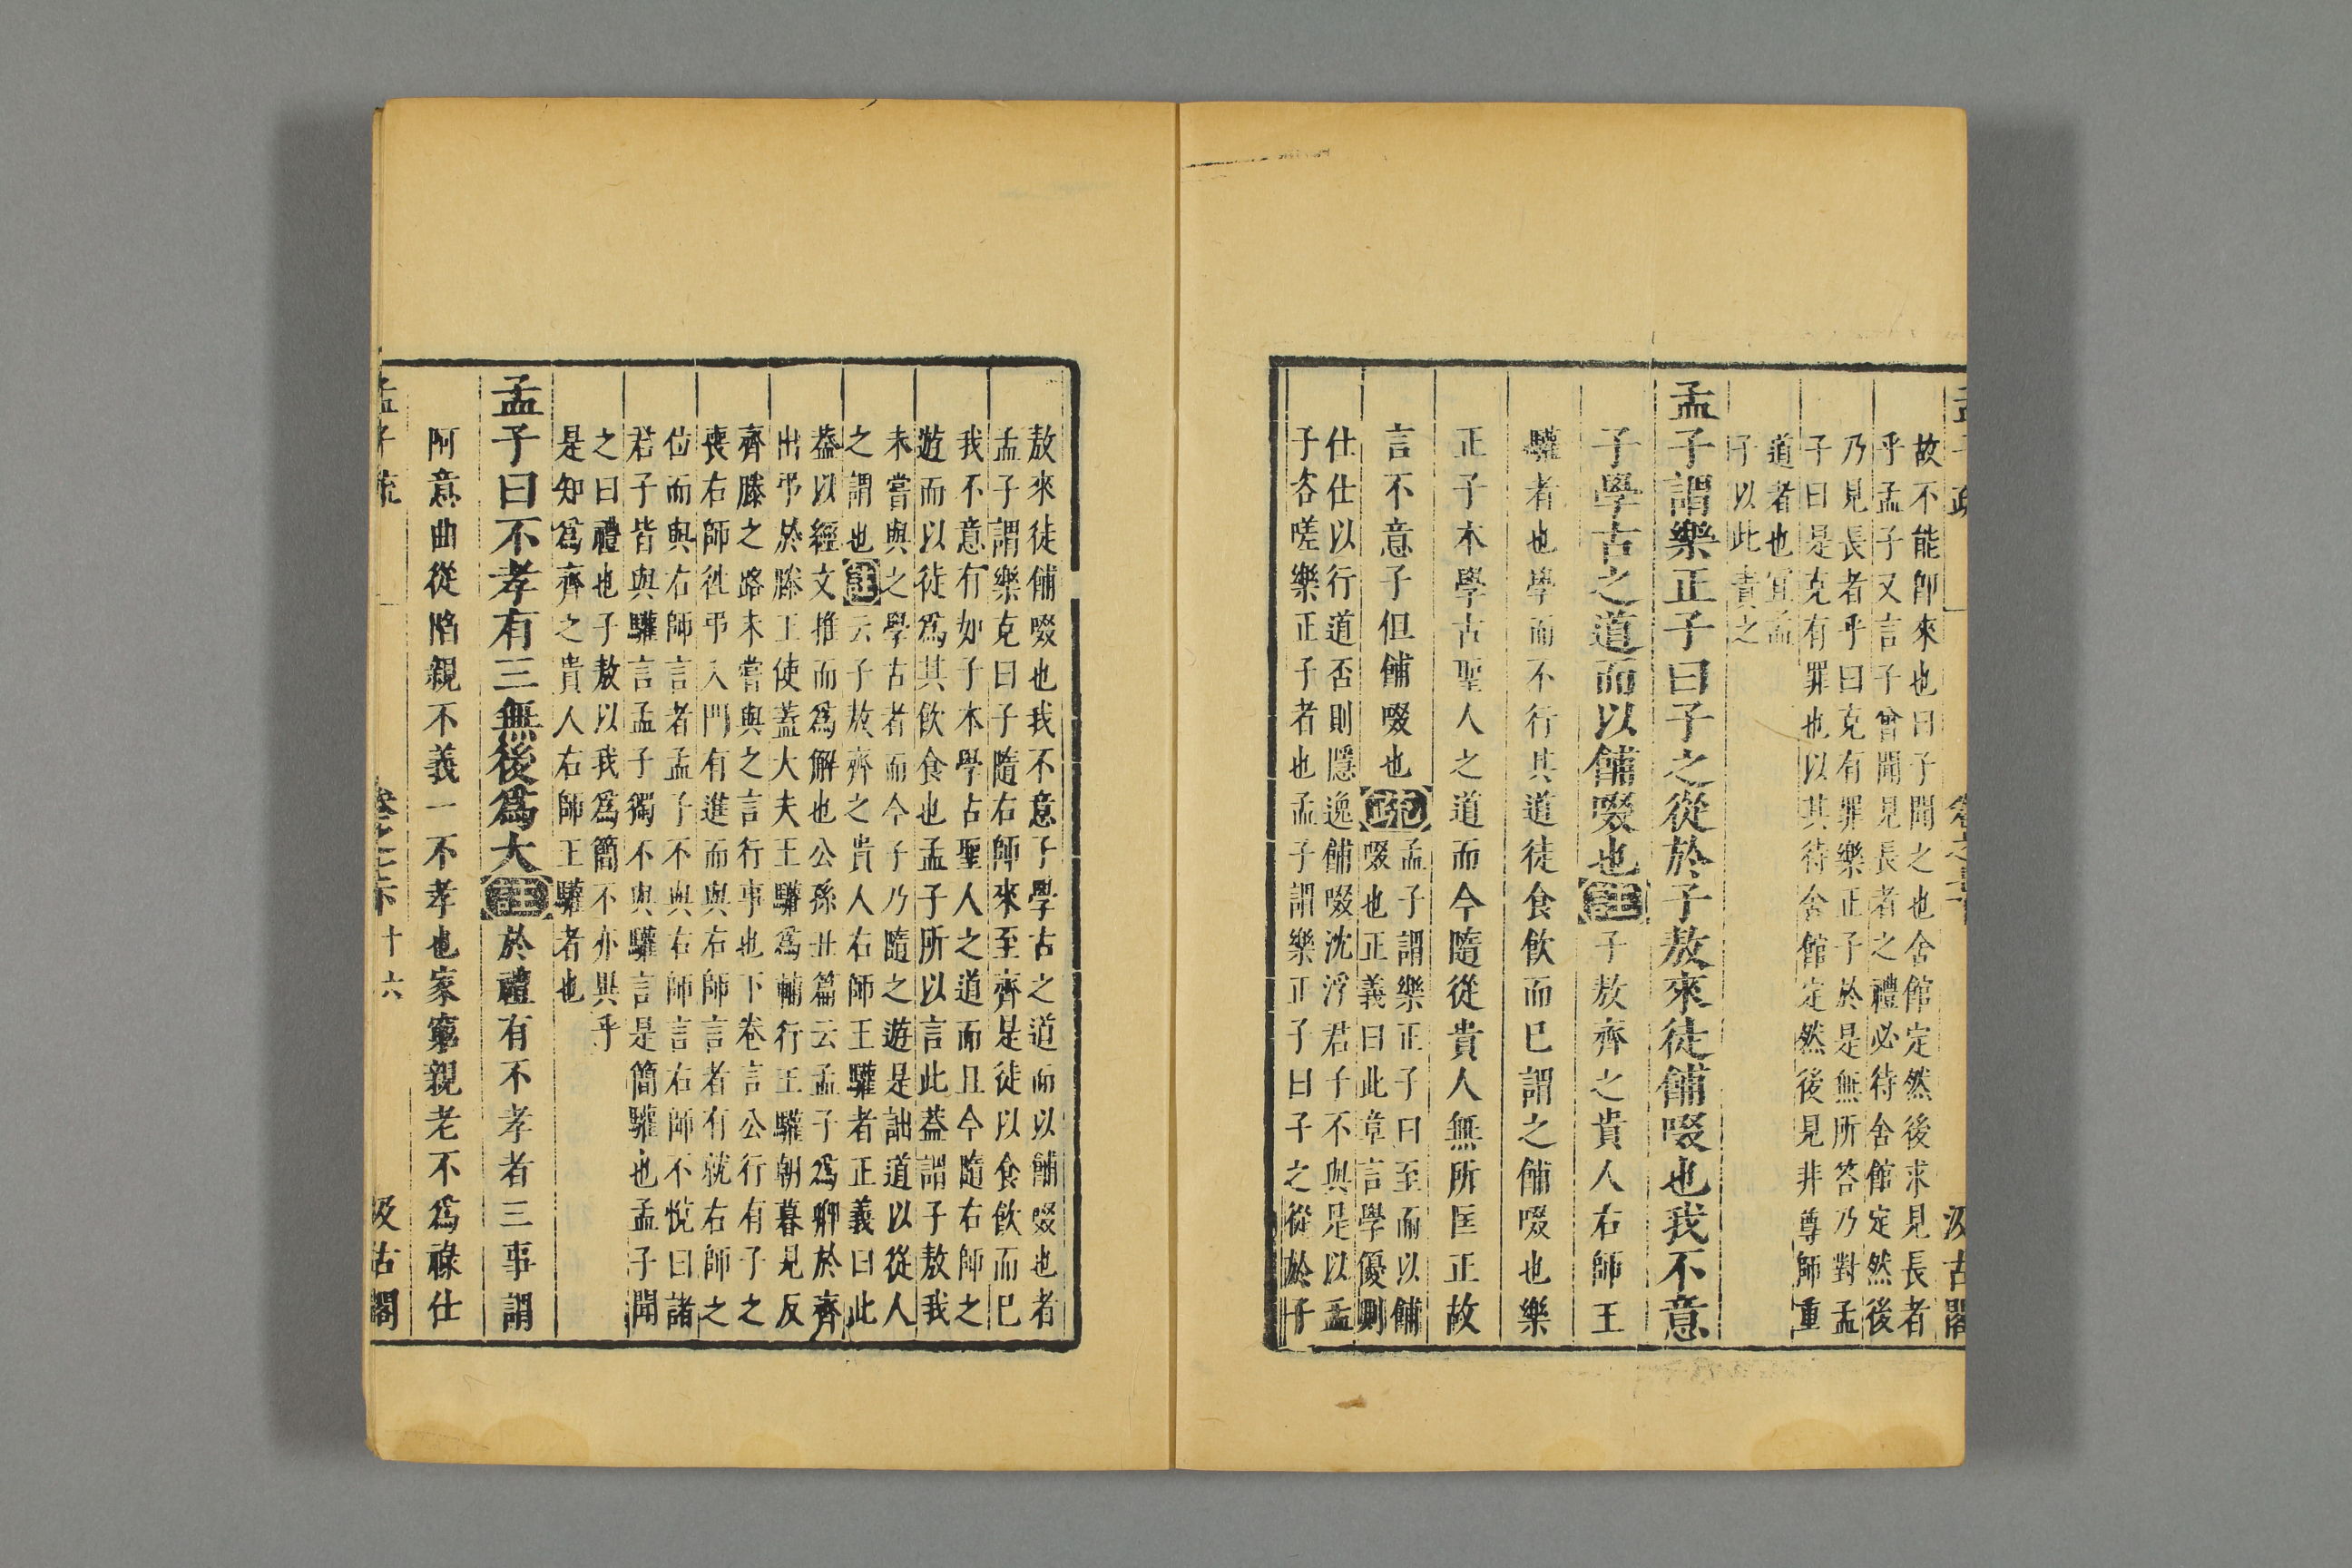 孟子疏
卷之七下
汲古閣
故不能卽來也曰子聞之也舍館定然後求見長者
乎孟子又言子曾聞見長者之禮必待舍館定然後
乃見長者乎曰克有罪樂正子於是無所答乃對孟
子曰是克有罪也以其待舍館定然後見非尊師重
道者也宜孟
子以此責之
孟子謂樂正子曰子之從於子敖來徒餔啜也我不意
子學古之道而以餔啜也註子敖齊之貴人右師王
驩者也學而不行其道徒食飲而已謂之餔啜也樂
正子本學古聖人之道而今隨從貴人無所匡正故
言不意子但餔啜也疏孟子謂樂正子曰至而以餔
啜也正義曰此章言學優則
仕仕以行道否則隱逸餔啜沈浮君子不與是以孟
子咨嗟樂正子者也孟子謂樂正子曰子之從於子
敖來徒餔啜也我不意子學古之道而以餔啜也者
孟子謂樂克曰子隨右師來至齊是徒以食飲而已
我不意有如子本學古聖人之道而且今隨右師之
遊而以徒爲其飲食也孟子所以言此蓋謂子敖我
未嘗與之學古者而今子乃隨之遊是詘道以從人
之謂也註云子敖齊之貴人右師王驩者正義曰此
蓋以經文推而爲解也公孫丑篇云孟子爲卿於齊
出弔於滕王使蓋大夫王驩爲輔行王驩朝暮見反
齊滕之路未嘗與之言行事也下卷言公行有子之
喪右師往弔入門有進而與右師言者有就右師之
位而與右師言者孟子不與右師言右師不悅曰諸
君子皆與驩言孟子獨不與驩言是簡驩也孟子聞
之曰禮也子敖以我爲簡不亦異乎
是知爲齊之貴人右師王驩者也
孟子曰不孝有三無後爲大註於禮有不孝者三事謂
阿意曲從陷親不義一不孝也家窮親老不爲祿仕
孟子疏
卷之七下
十六
汲古閣